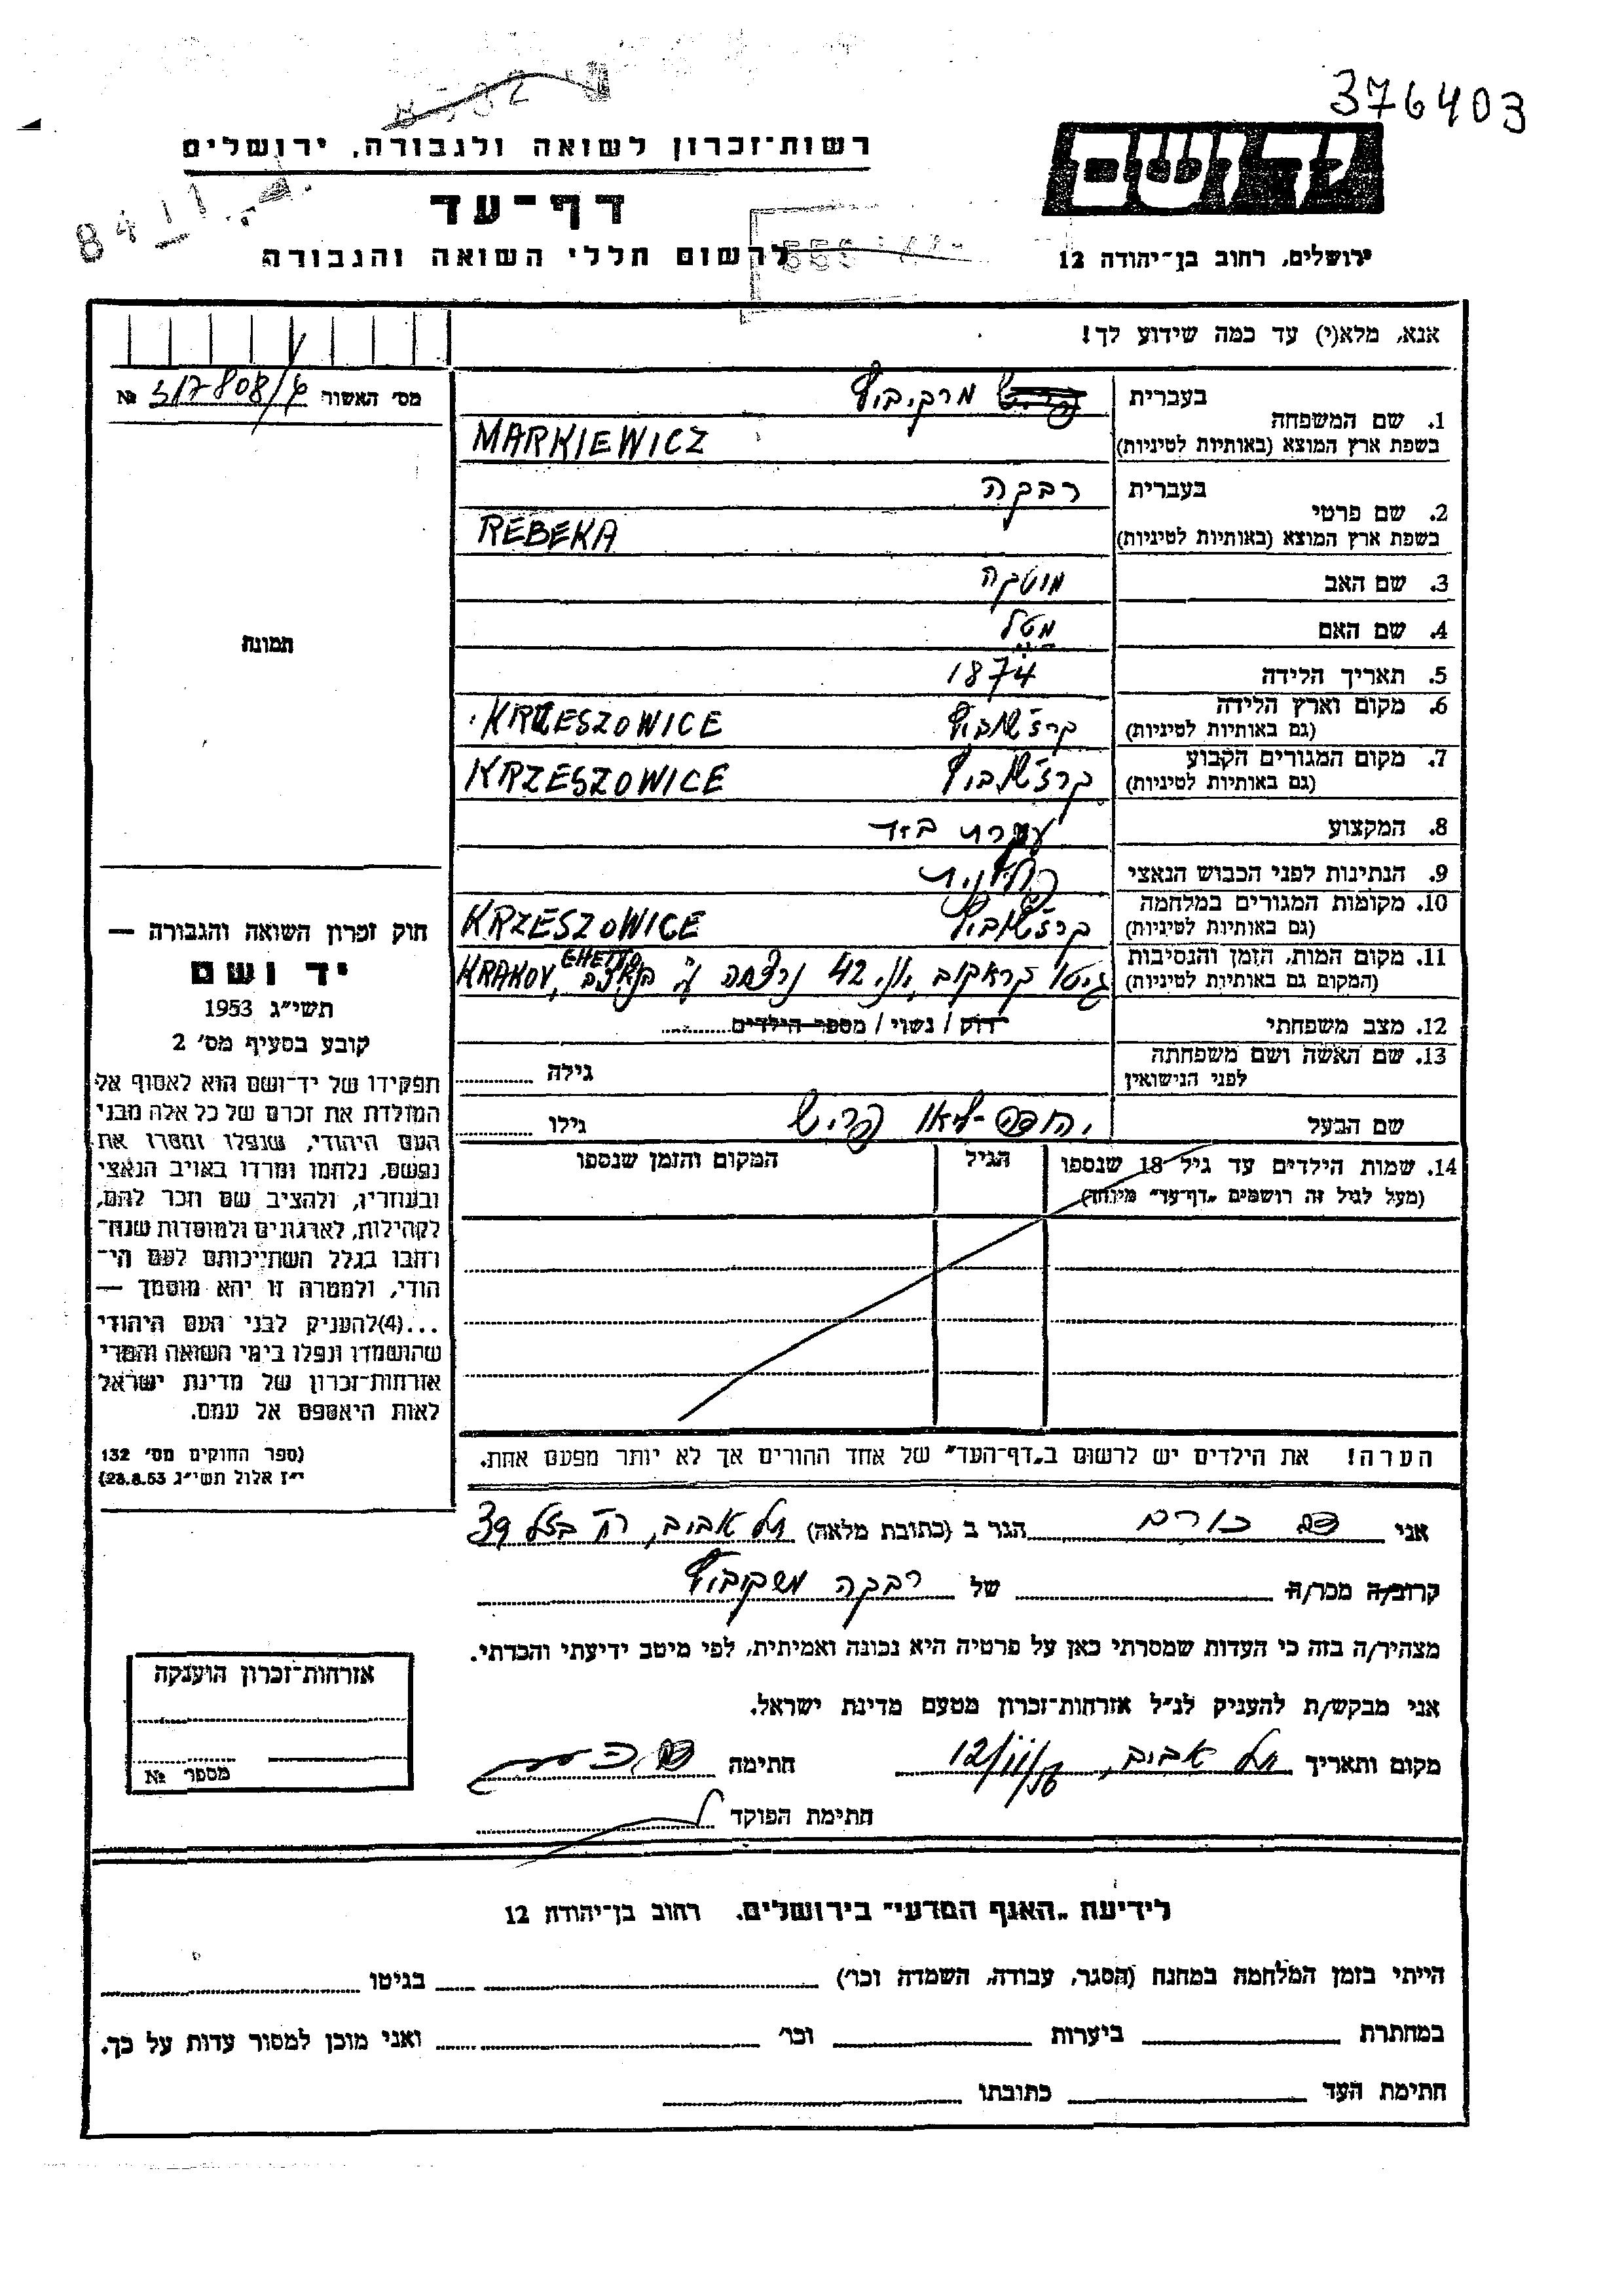 376403
8532
רשות־זכרון לשואה ולגבורה, ירושלים
יד ושם
דף־עד
לרשום חללי השואה והגבורה
ירושלים, רחוב בן־יהודה 12
אנא, מלא(י) עד כמה שידוע לך!
מס׳ האשור № 317808/
בעברית מרקיביץ
1. שם המשפחה
בשפת ארץ המוצא (באותיות לטיניות) MARKIEWICZ
בעברית רבקה
2. שם פרטי
בשפת ארץ המוצא (באותיות לטיניות) REBEKA
3. שם האב מוטקה
4. שם האם מטל
תמונה
5. תאריך הלידה 1874
6. מקום וארץ הלידה
(גם באותיות לטיניות) קרז׳שוביץ KRZESZOWICE
7. מקום המגורים הקבוע
(גם באותיות לטיניות) קרז׳שוביץ KRZESZOWICE
8. המקצוע עקרת בית
9. הנתינות לפני הכבוש הנאצי פולנית
10. מקומות המגורים במלחמה
(גם באותיות לטיניות) קרז׳שוביץ KRZESZOWICE
11. מקום המות, הזמן והנסיבות
(המקום גם באותיות לטיניות) גיטו קראקוב, יוני 42 נרצחה ע״י הנאצים KRAKOV, GHETTO
12. מצב משפחתי רווק / נשוי / מספר הילדים
13. שם האשה ושם משפחתה
לפני הנישואין גילה
שם הבעל יהודה־ גילו
14. שמות הילדים עד גיל 18 שנספו הגיל המקום והזמן שנספו
(מעל לגיל זה רושמים „דף־עד״ מיוחד)
חוק זכרון השואה והגבורה —
יד ושם
תשי״ג 1953
קובע בסעיף מס׳ 2
תפקידו של יד־ושם הוא לאסוף אל
המולדת את זכרם של כל אלה מבני
העם היהודי, שנפלו ומסרו את
נפשם, נלחמו ומרדו באויב הנאצי
ובעוזריו, ולהציב שם וזכר להם,
לקהילות, לארגונים ולמוסדות שנח־
רבו בגלל השתייכותם לעם הי־
הודי, ולמטרה זו יהא מוסמך —
...(4)להעניק לבני העם היהודי
שהושמדו ונפלו בימי השואה והמרי
אזרחות־זכרון של מדינת ישראל
לאות היאספם אל עמם.
(ספר החוקים מס׳ 132
י״ז אלול תשי״ג 28.8.53)
הערה! את הילדים יש לרשום ב„דף־העד״ של אחד ההורים אך לא יותר מפעם אחת.
אני הגר ב (כתובת מלאה) תל אביב, רח׳ בזל 39
קרוב/ה מכר/ה של רבקה מרקיביץ
מצהיר/ה בזה כי העדות שמסרתי כאן על פרטיה היא נכונה ואמיתית, לפי מיטב ידיעתי והכרתי.
אני מבקש/ת להעניק לנ״ל אזרחות־זכרון מטעם מדינת ישראל.
מקום ותאריך תל אביב, חתימה
חתימת הפוקד
אזרחות־זכרון הוענקה
מספר №
לידיעת „האגף המדעי״ בירושלים, רחוב בן־יהודה 12
הייתי בזמן המלחמה במחנה (הסגר, עבודה, השמדה וכו׳) בגיטו
במחתרת ביערות וכו׳ ואני מוכן למסור עדות על כך.
חתימת העד כתובתו